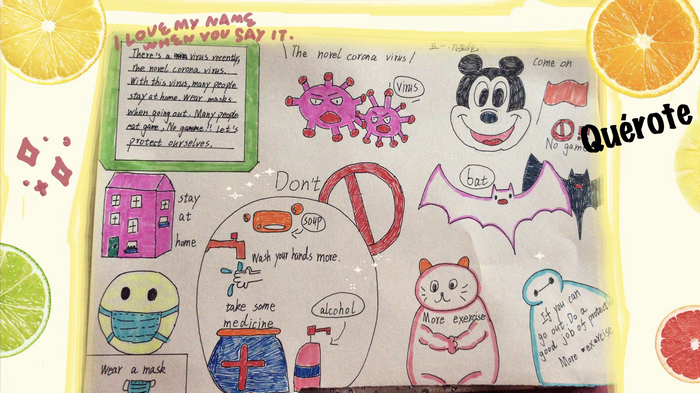 I LOVE MY NAME
WHEN YOU SAY IT.
There's a virus recently,
The novel corona virus.
With this virus, many people
stay at home. Wear masks
when going out. Many people
eat game, No gamme!! Let's
protect ourselves.
The novel corona virus!
virus
come on
No game
Quérote
stay
at
home
Don't
bat
soup
Wash your hands more.
take some
medicine
alcohol
More exercise
If you can
go out. Do a
good job of protect
More exercise
Wear a mask